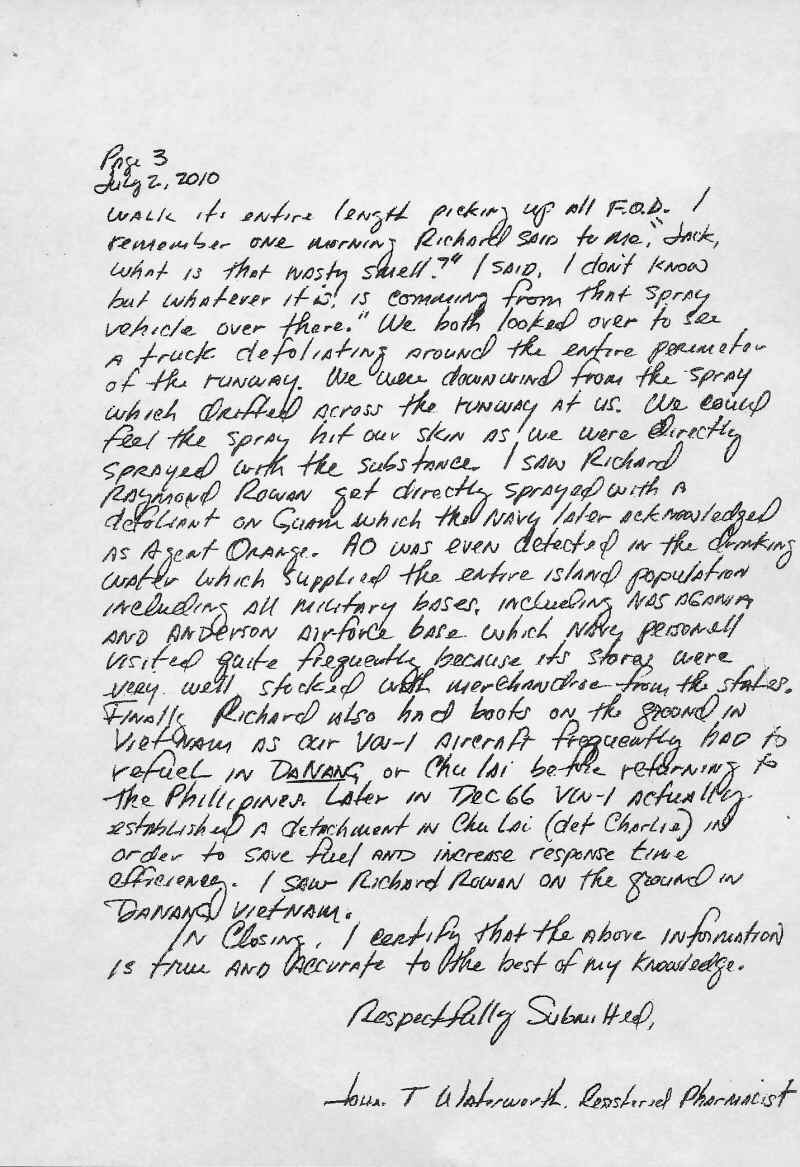 Page 3
July 2, 2010
walk its entire length picking up all F.O.D. I
remember one morning Richard said to me, "Jack,
what is that nasty smell?" I said, I don't know
but whatever it is, is comming from that spray
vehicle over there." We both looked over to see
a truck defoliating around the entire perimeter
of the runway. We were downwind from the spray
which drifted across the runway at us. We could
feel the spray hit our skin as we were directly
sprayed with the substance. I saw Richard
Raymond Rowan get directly sprayed with a
defoliant on Guam which the Navy later acknowledged
as Agent Orange. AO was even detected in the drinking
water which supplied the entire island population
including all military bases, including NAS Agania
and Anderson Airforce base which Navy personell
visited quite frequently because its stores were
very well stocked with merchandise from the states.
Finally Richard also had boots on the ground in
VietNam as our VW-1 aircraft frequently had to
refuel in DaNang or Chu Lai before returning to
the Phillipines. Later in Dec 66 VW-1 actually
established a detachment in Chu Lai (det Charlie) in
order to save fuel and increase response time
efficiency. I saw Richard Rowan on the ground in
DaNang VietNam.
In Closing, I certify that the above information
is true and accurate to the best of my knowledge.
Respectfully Submitted,
John T Waterworth. Registered Pharmacist